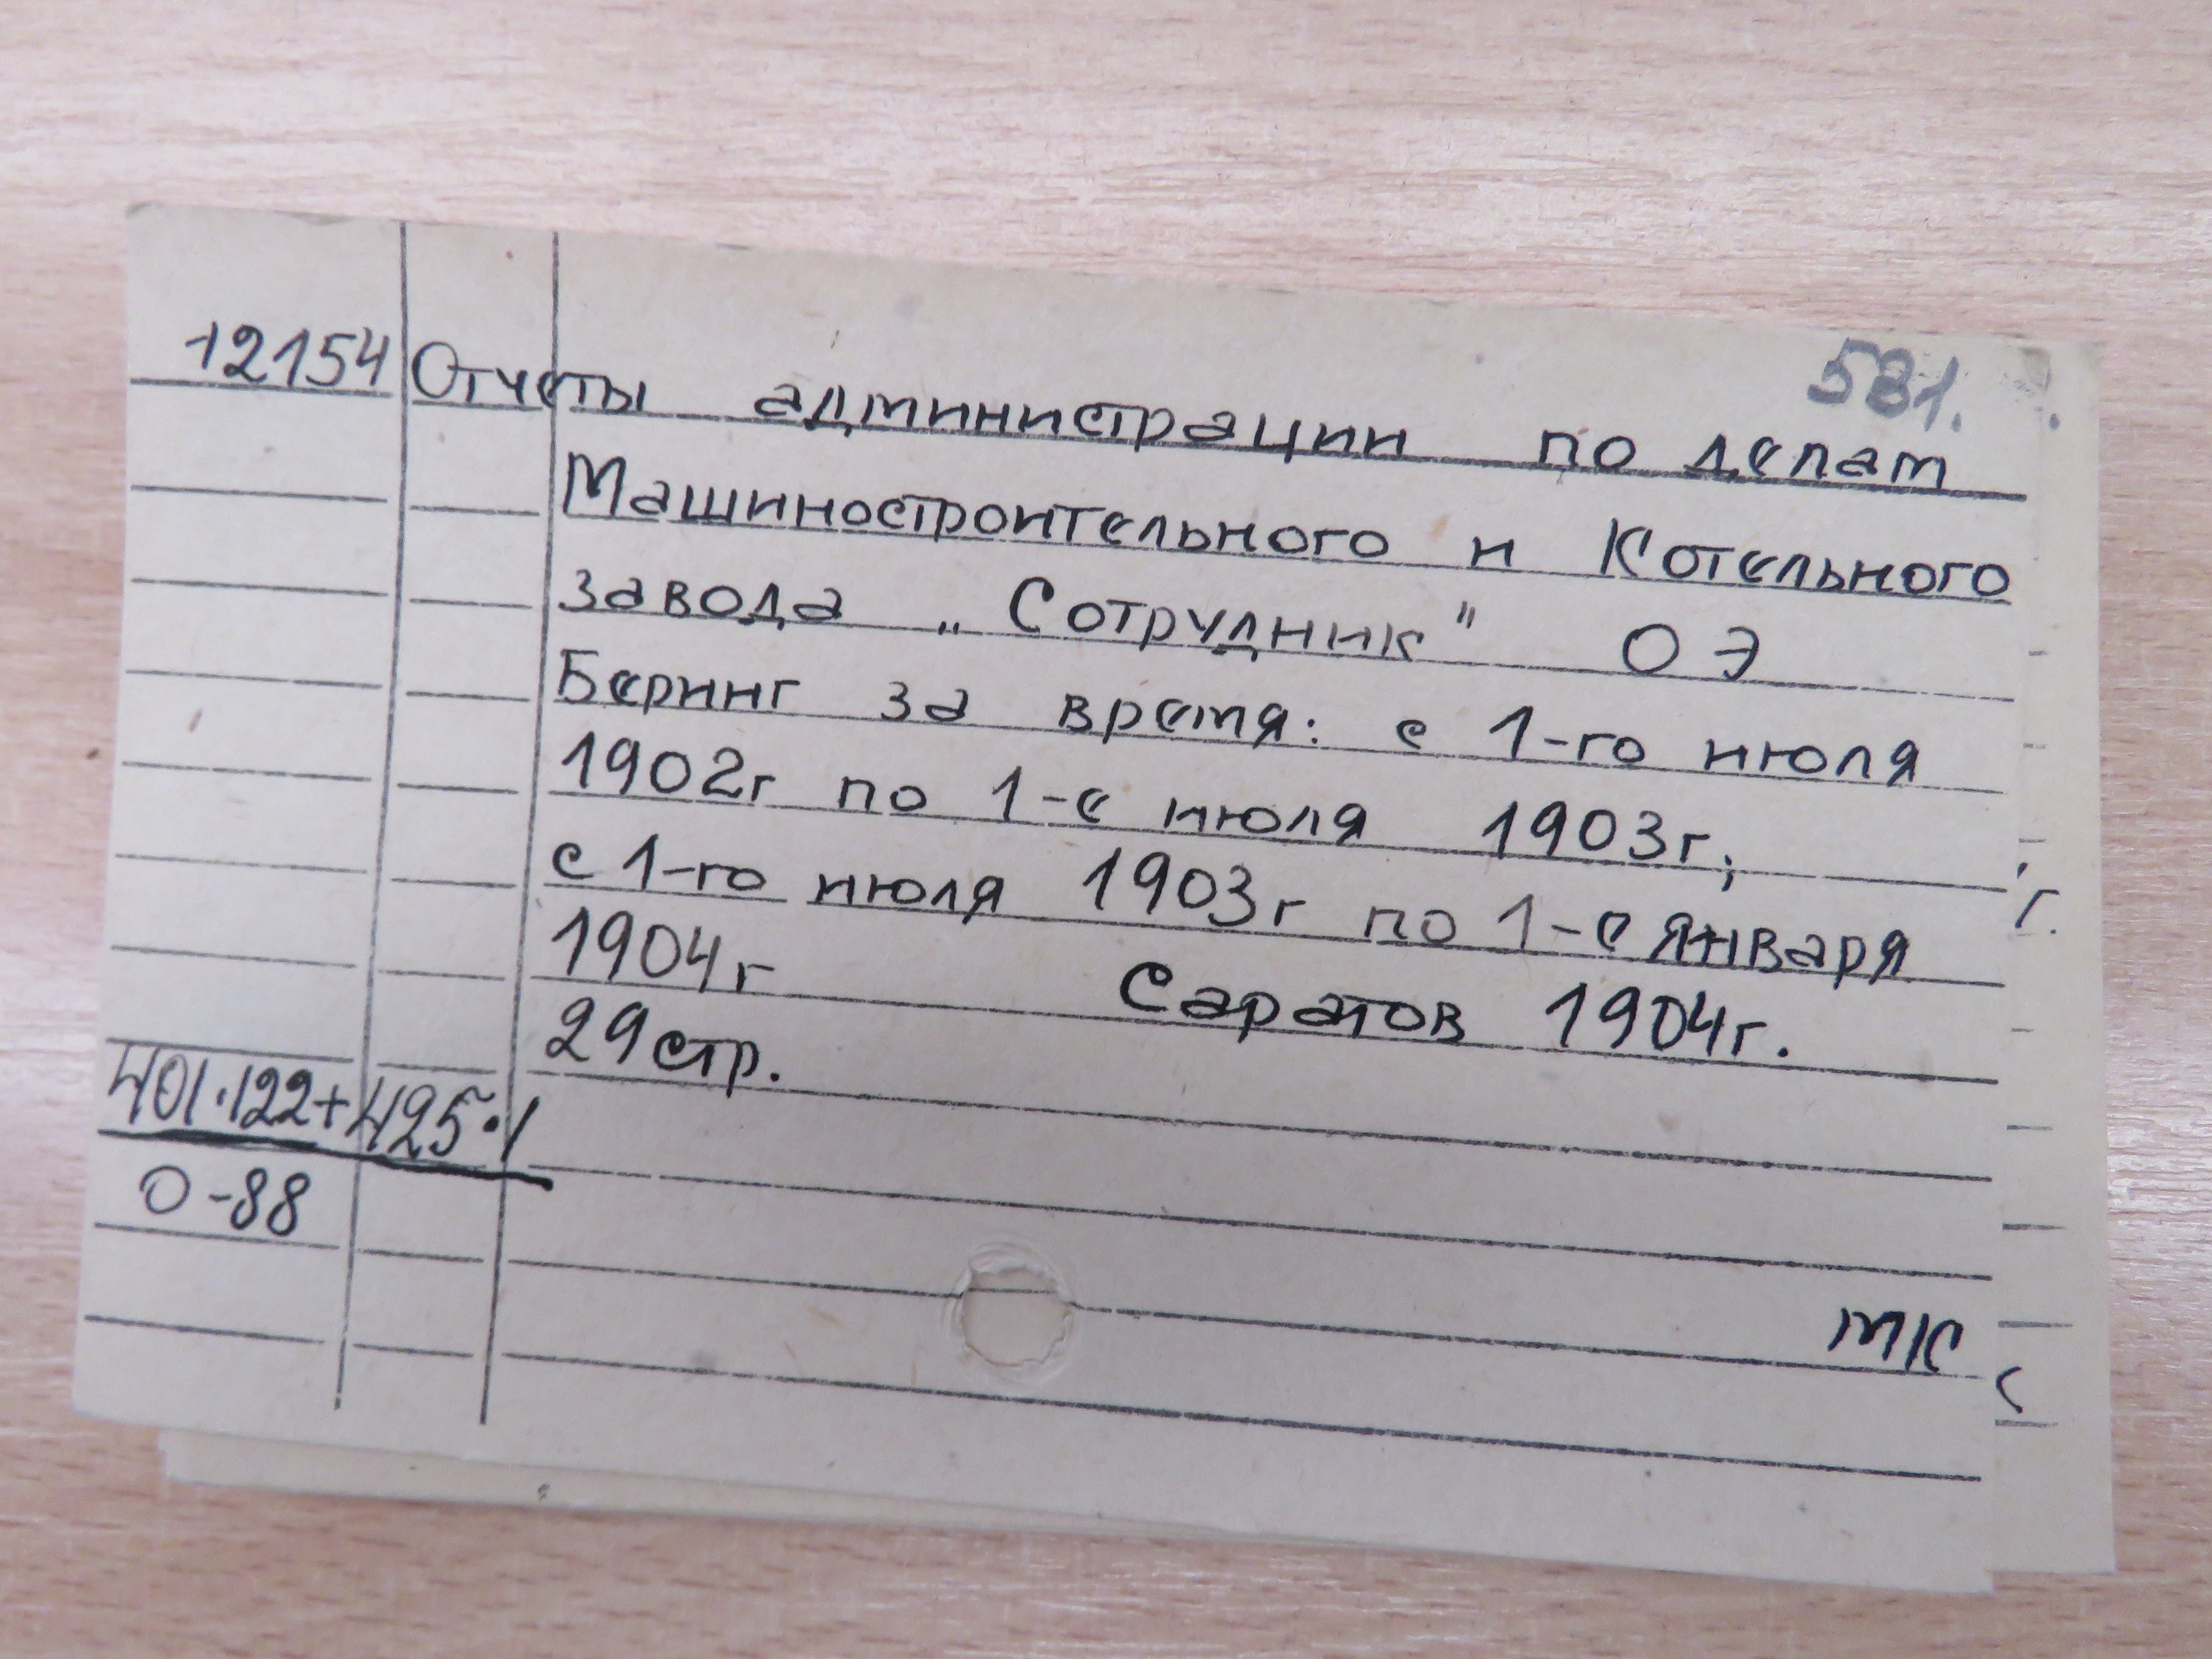 581.
12154 Отчеты администрации по делам
Машиностроительного и Котельного
завода „Сотрудник" О Э
Беринг за время: с 1-го июля
1902г по 1-е июля 1903г;
с 1-го июля 1903г по 1-е января
1904г Саратов 1904г.
29 стр.
401.122+425.1
О-88
МК